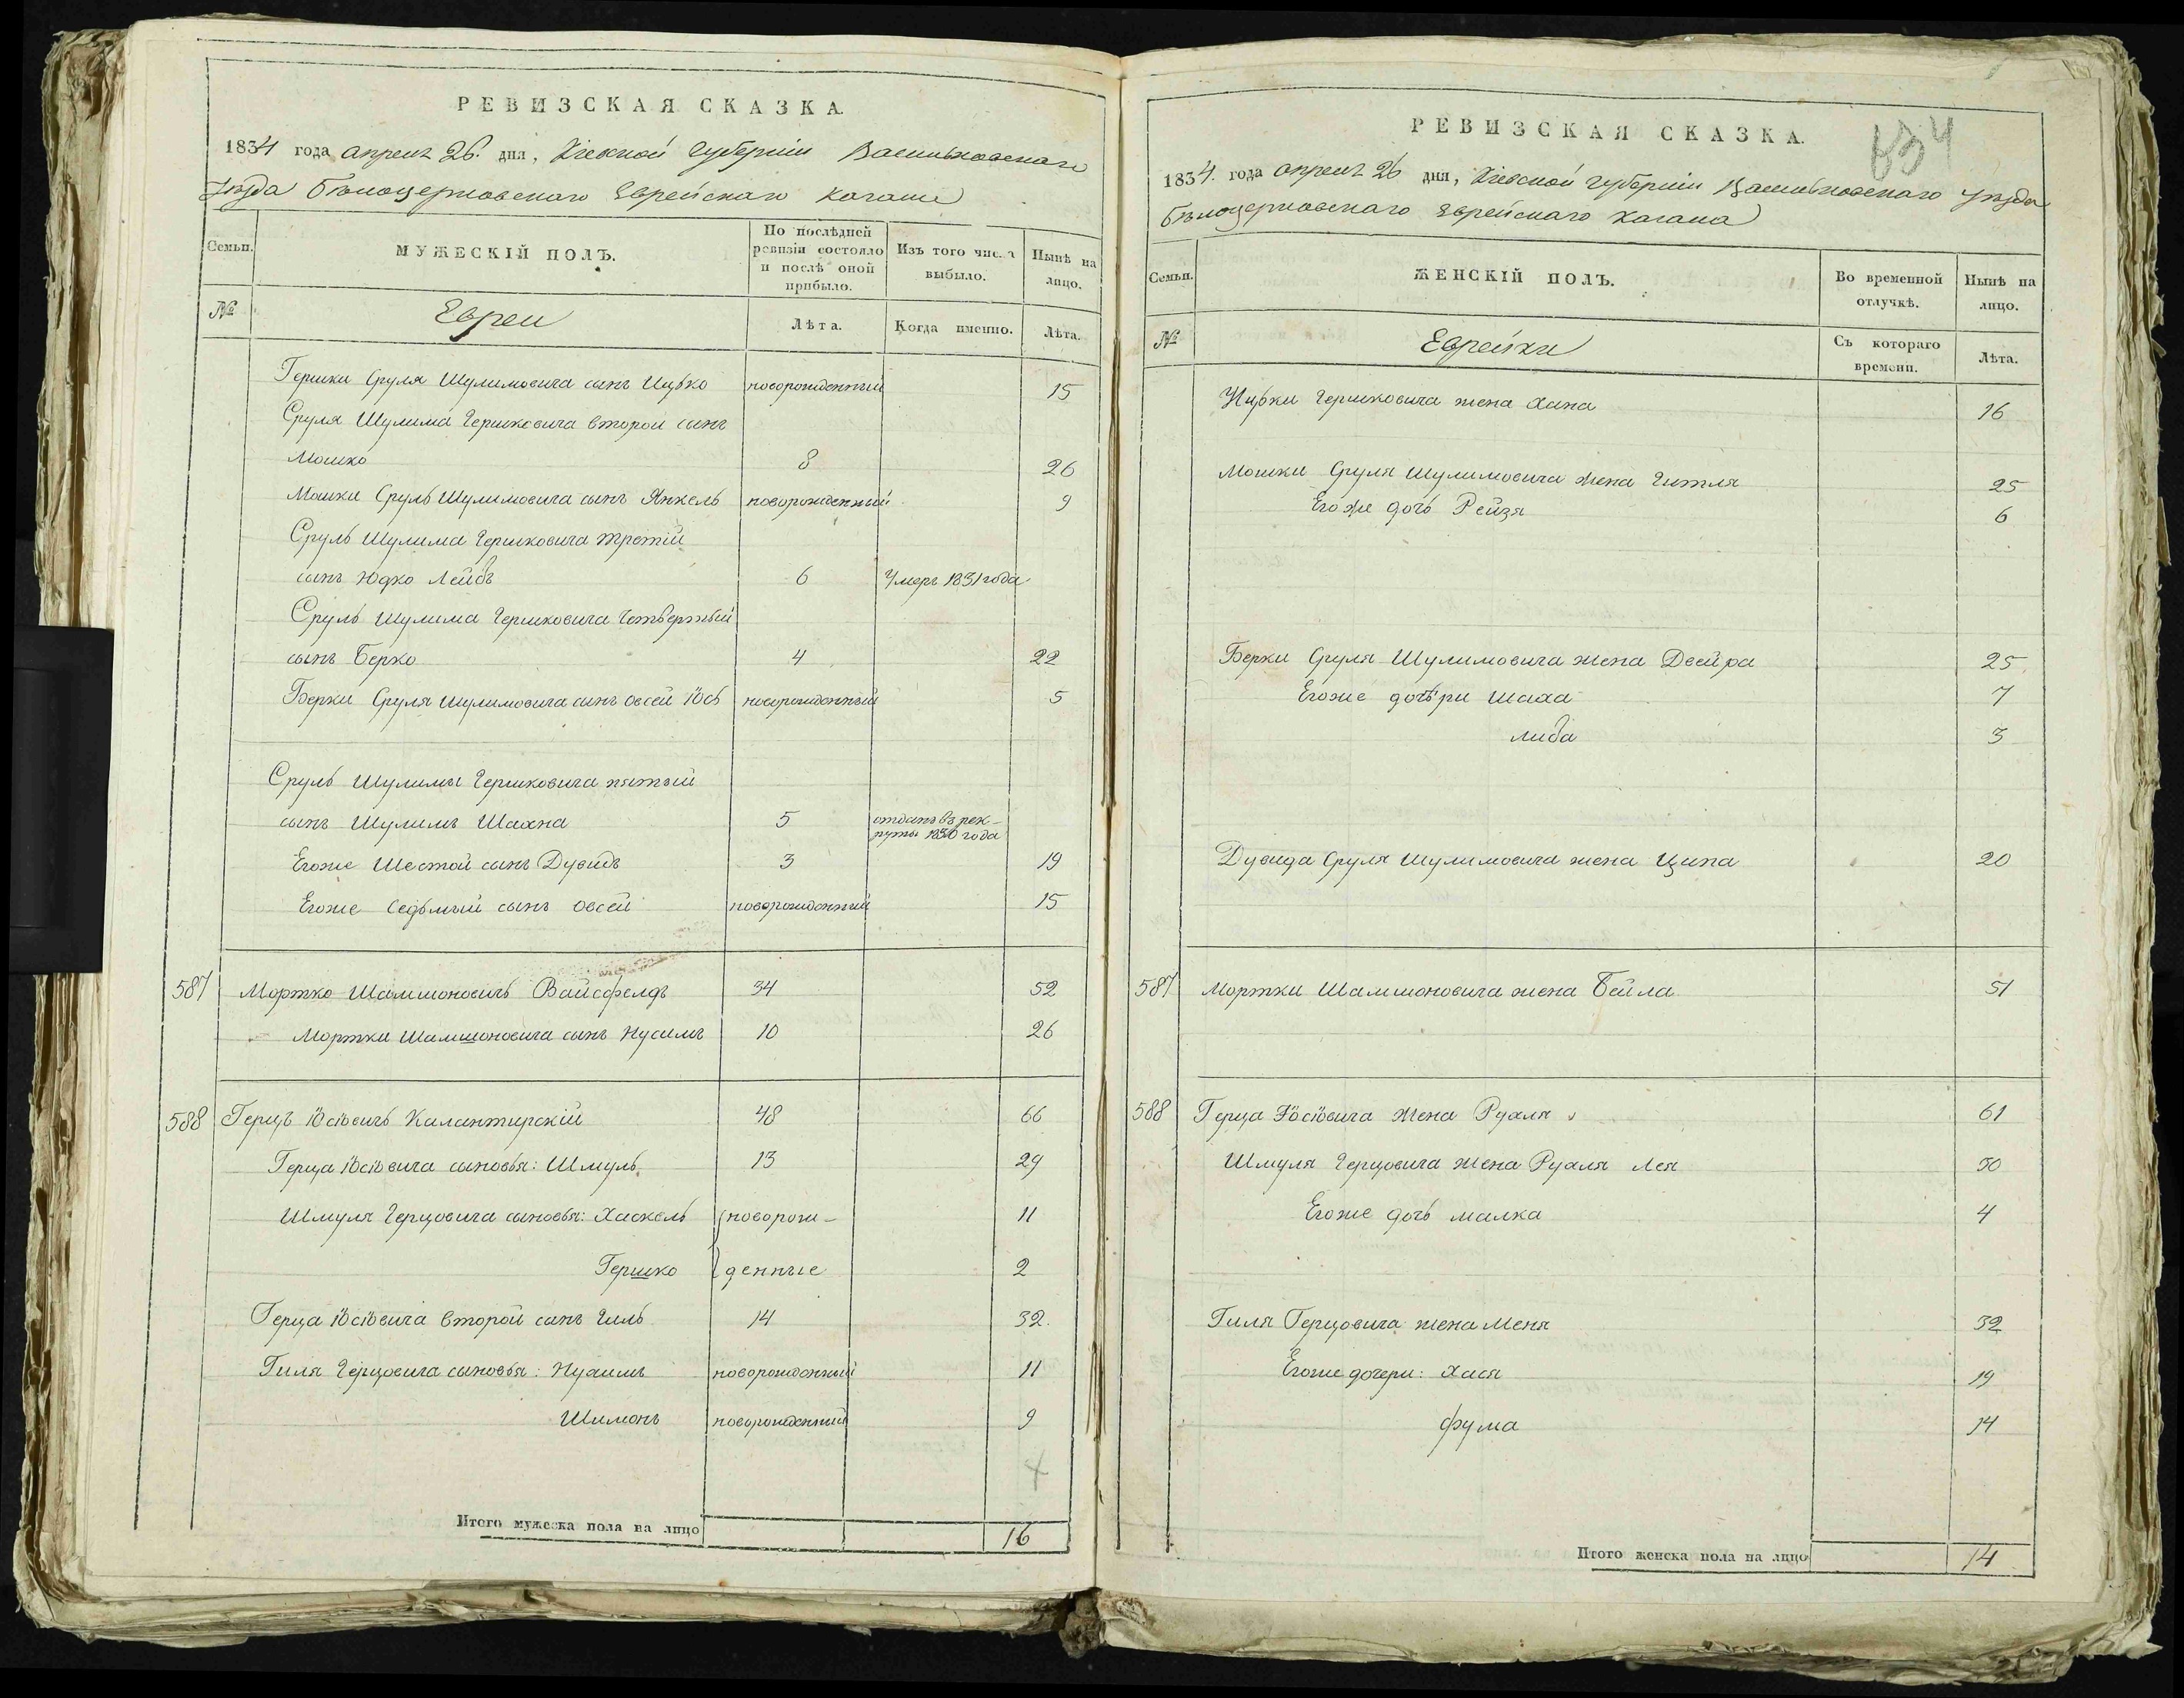 РЕВИЗСКАЯ СКАЗКА.
1834 года апреля 26. дня, Кіевской Губерніи Васильковскаго
Уѣзда Бѣлоцерковскаго Еврейскаго Кагала
Семьи. МУЖЕСКІЙ ПОЛЪ. По послѣдней ревизіи состояло и послѣ оной прибыло. Изъ того числа выбыло. Нынѣ на лицо.
№ Евреи Лѣта. Когда именно. Лѣта.
Гершки Сруля Шулимовича сынъ Ицько новорожденный 15
Сруля Шулима Гершковича второй сынъ
Мошко 8 26
Мошки Сруль Шулимовича сынъ Янкель новорожденный 9
Сруль Шулима Гершковича третій
сынъ Юдко Лейбъ 6 Умеръ 1831 года
Сруль Шулима Гершковича четвертый
сынъ Берко 4 22
Берки Сруля Шулимовича сынъ Овсей Іось новорожденный 5
Сруль Шулимы Гершковича пятый
сынъ Шулимъ Шахна 5 отданъ въ рек-
руты 1830 года
Егоже Шестой сынъ Дувидъ 3 19
Егоже Седьмый сынъ Овсей новорожденный 15
587 Мортко Шамшоновичъ Вайсфелдъ 34 52
Мортки Шамшоновича сынъ Нусимъ 10 26
588 Герцъ Іосіовичъ Калантирскій 48 66
Герца Іосіовича сыновья: Шмуль 13 29
Шмуля Герцовича сыновья: Хаскель новорож- 11
Гершко денные 2
Герца Іосіовича второй сынъ Гиль 14 32.
Гиля Герцовича сыновья: Нухимъ новорожденный 11
Шимонъ новорожденный 9
4
Итого мужеска пола на лицо 16
РЕВИЗСКАЯ СКАЗКА.
834
1834. года апреля 26 дня, Кіевской Губерніи Васильковскаго Уѣзда
Бѣлоцерковскаго Еврейскаго Кагала
Семьи. ЖЕНСКІЙ ПОЛЪ. Во временной отлучкѣ. Нынѣ на лицо.
№ Еврейки Съ котораго времени. Лѣта.
Ицьки Гершковича жена Хана 16
Мошки Сруля Шулимовича жена Гитля 25
Егоже дочь Рейзя 6
Берки Сруля Шулимовича жена Двейра 25
Егоже дочѣри Шаха 7
Либа 3
Дувида Сруля Шулимовича жена Ципа 20
587 Мортки Шамшоновича жена Бейла 51
588 Герца Іосіовича жена Рухля 61
Шмуля Герцовича жена Рухля Лея 30
Егоже дочь Малка 4
Гиля Герцовича жена Меня 32
Егоже дочери: Хася 19
Фрума 14
Итого женска пола на лицо 14